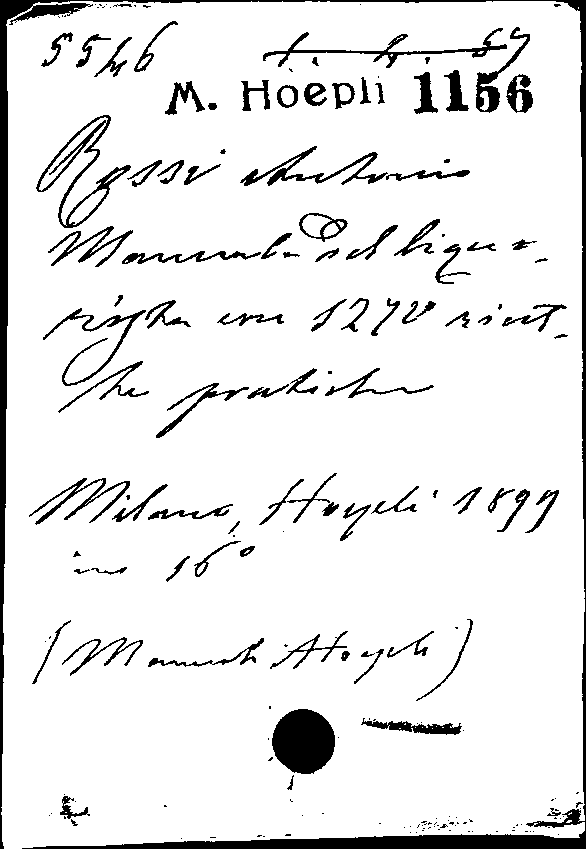 5546 1. 4. 57
M. Hoepli 1156
Rossi Antonio
Manuale del liquo-
rista con 1270 ricet-
te pratiche
Milano, Hoepli 1899
in 16°
(Manuali Hoepli)